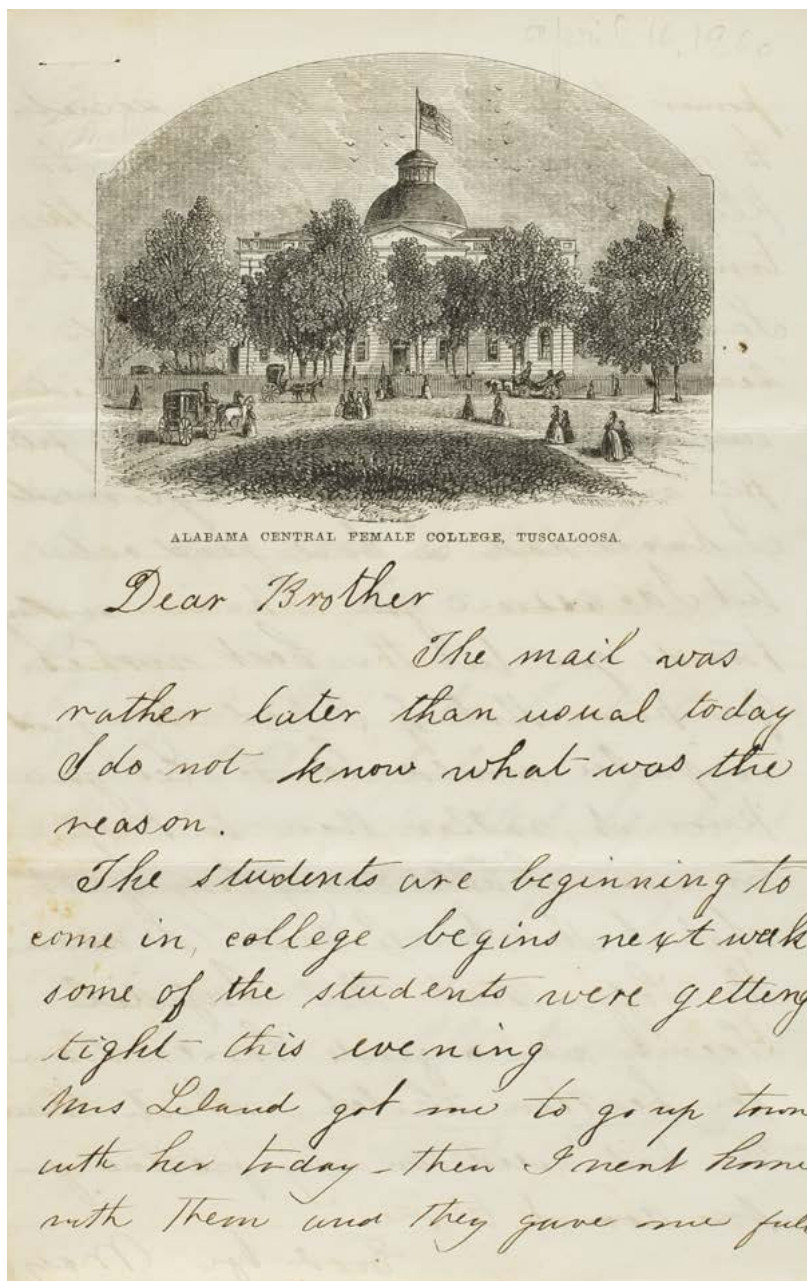 ALABAMA CENTRAL FEMALE COLLEGE, TUSCALOOSA.
Dear Brother
The mail was
rather later than usual today
I do not know what was the
reason.
The students are beginning to
come in, college begins next week
some of the students were getting
tight this evening
Mrs Leland got me to go up town
with her today - then I went home
with them and they gave me full